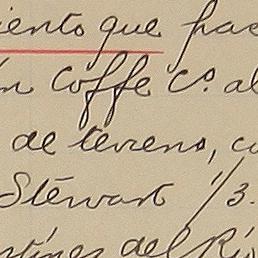 iento que pac
n Coffe Co. al
de terreno, co
Stéwart 1/3.
tínes del Rí